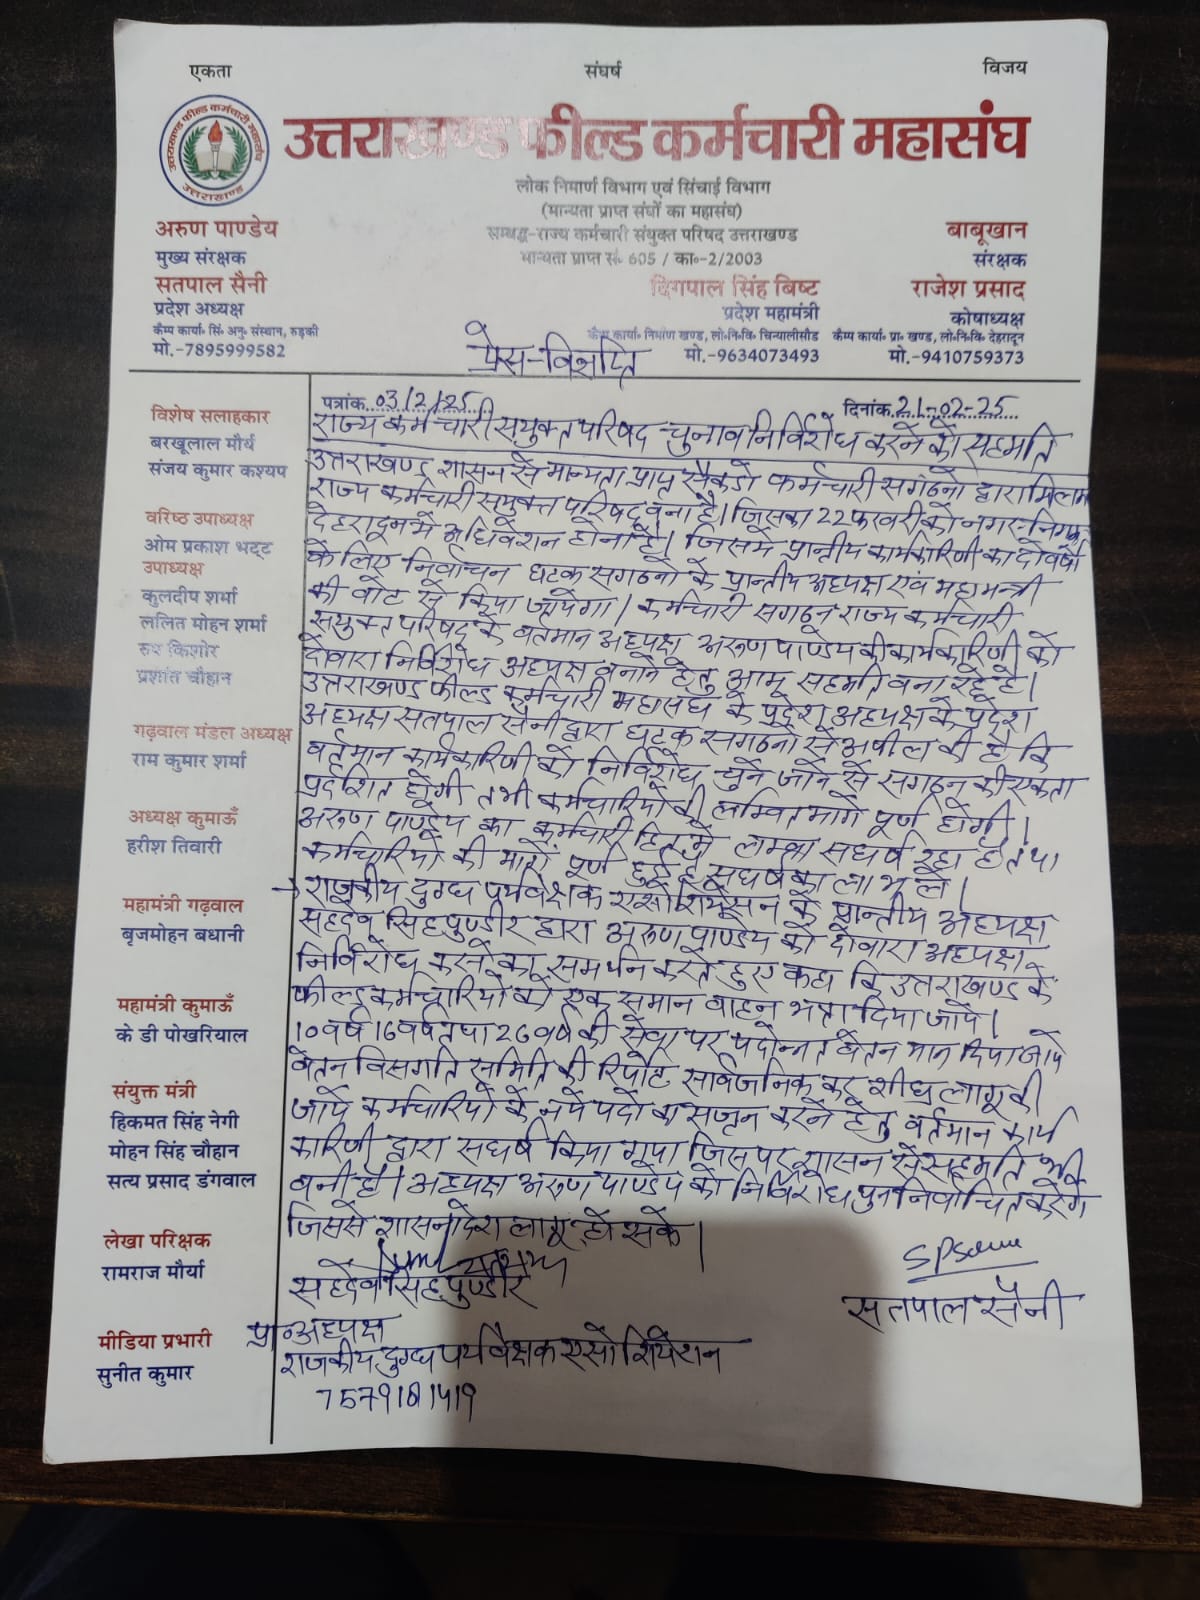 एकता
संघर्ष
विजय
उत्तराखण्ड फील्ड कर्मचारी महासंघ
उत्तराखण्ड फील्ड कर्मचारी महासंघ
उत्तराखण्ड
लोक निमार्ण विभाग एवं सिंचाई विभाग
(मान्यता प्राप्त संघों का महासंघ)
सम्बद्ध-राज्य कर्मचारी संयुक्त परिषद उत्तराखण्ड
मान्यता प्राप्त सं. 605 / का०-2/2003
अरुण पाण्डेय
मुख्य संरक्षक
सतपाल सैनी
प्रदेश अध्यक्ष
कैम्प कार्या० सिं० अनु० संस्थान, रुड़की
मो.-7895999582
दिगपाल सिंह बिष्ट
प्रदेश महामंत्री
कैम्प कार्या० निर्माण खण्ड, लो०नि०वि० चिन्यालीसौड
मो.-9634073493
बाबूखान
संरक्षक
राजेश प्रसाद
कोषाध्यक्ष
कैम्प कार्या० प्रा० खण्ड, लो०नि०वि० देहरादून
मो.-9410759373
प्रेस-विज्ञप्ति
पत्रांक 03/2/25
दिनांक 21-02-25
विशेष सलाहकार
बरखूलाल मौर्य
संजय कुमार कश्यप
वरिष्ठ उपाध्यक्ष
ओम प्रकाश भट्ट
उपाध्यक्ष
कुलदीप शर्मा
ललित मोहन शर्मा
रूप किशोर
प्रशांत चौहान
गढ़वाल मंडल अध्यक्ष
राम कुमार शर्मा
अध्यक्ष कुमाऊँ
हरीश तिवारी
महामंत्री गढ़वाल
बृजमोहन बधानी
महामंत्री कुमाऊँ
के डी पोखरियाल
संयुक्त मंत्री
हिकमत सिंह नेगी
मोहन सिंह चौहान
सत्य प्रसाद डंगवाल
लेखा परिक्षक
रामराज मौर्या
मीडिया प्रभारी
सुनीत कुमार
राज्य कर्मचारी सयुक्त परिषद चुनाव निर्विरोध करने को सहमति
उत्तराखण्ड शासन से मान्यता प्राप्त सैकडो कर्मचारी सगठनो द्वारा मिलकर
राज्य कर्मचारी सयुक्त परिषद बना है। जिसका 22 फरवरी को नगर-निगम
देहरादून मे अधिवेशन होना है। जिसमे प्रान्तीय कार्यकारिणी का दो वर्षो
के लिए निर्वाचन घटक सगठनो के प्रान्तीय अध्यक्ष एवं महामन्त्री
की वोट से किया जायेगा। कर्मचारी सगठन राज्य कर्मचारी
सयुक्त परिषद के वर्तमान अध्यक्ष अरूण पाण्डेय की कार्यकारिणी को
दोवारा निर्विरोध अध्यक्ष बनाने हेतु आम सहमति बना रहे है।
उत्तराखण्ड फील्ड कर्मचारी महासंघ के प्रदेश अध्यक्ष के प्रदेश
अध्यक्ष सतपाल सैनी द्वारा घटक सगठनो से अपील की है कि
वर्तमान कार्यकारिणी को निर्विरोध चुने जाने से सगठन की एकता
प्रदर्शित होगी तभी कर्मचारियो की लम्वित मागे पूर्ण होगी।
अरूण पाण्डेय का कर्मचारी हित मे लम्बा सघर्ष रहा है तथा
कर्मचारियो की मागे पूर्ण हुई है सघर्ष का लाभ ले।
→ राजकीय दुग्ध पर्यवेक्षक एसोशियेसन के प्रान्तीय अध्यक्ष
सहदेव सिह पुण्डीर द्वारा अरूण पाण्डेय को दोवारा अध्यक्ष
निर्विरोध करने का समर्थन करते हुए कहा कि उत्तराखण्ड के
फील्ड कर्मचारियो को एक समान वाहन भत्ता दिया जाये।
10 वर्ष 16 वर्ष तथा 26 वर्ष की सेवा पर पदोन्नत वेतन मान दिया जाये
वेतन विसगति समिति की रिपोर्ट सार्वजनिक कर शीघ्र लागू की
जाये कर्मचारियो के नये पदो का सृजन करने हेतु वर्तमान कार्य
कारिणी द्वारा सघर्ष किया गया जिस पर शासन से सहमति भी
बनी है। अध्यक्ष अरूण पाण्डेय को निर्विरोध पुन निर्वाचित करेगे
जिससे शासनादेश लागू हो सके।
सहदेव सिह पुण्डीर
प्रा० अध्यक्ष
राजकीय दुग्ध पर्यवेक्षक एसोशियेशन
7579181419
सतपाल सैनी